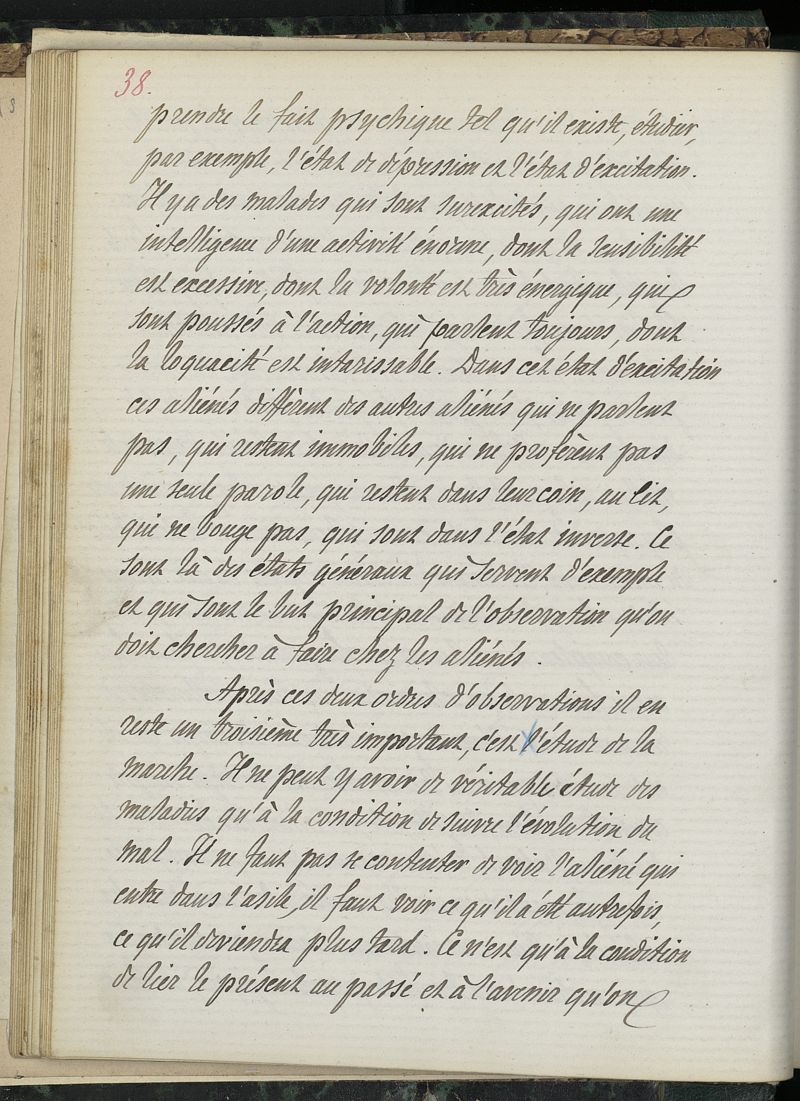 38.
prendre le fait psychique tel qu'il existe, étudier,
par exemple, l'état de dépression et l'état d'excitation.
Il y a des malades qui sont surexcités, qui ont une
intelligence d'une activité énorme, dont la sensibilité
est excessive, dont la volonté est très énergique, qui
sont poussés à l'action, qui parlent toujours, dont
la loquacité est intarissable. Dans cet état d'excitation
ces aliénés diffèrent des autres aliénés qui ne parlent
pas, qui restent immobiles, qui ne profèrent pas
une seule parole, qui restent dans leur coin, au lit,
qui ne bouge pas, qui sont dans l'état inverse. Ce
sont là des états généraux qui servent d'exemple
et qui sont le but principal de l'observation qu'on
doit chercher à faire chez les aliénés.
Après ces deux ordres d'observations il en
reste un troisième très important, c'est l'étude de la
marche. Il ne peut y avoir de véritable étude des
maladies qu'à la condition de suivre l'évolution du
mal. Il ne faut pas se contenter de voir l'aliéné qui
entre dans l'asile, il faut voir ce qu'il a été autrefois,
ce qu'il deviendra plus tard. Ce n'est qu'à la condition
de lier le présent au passé et à l'avenir qu'on